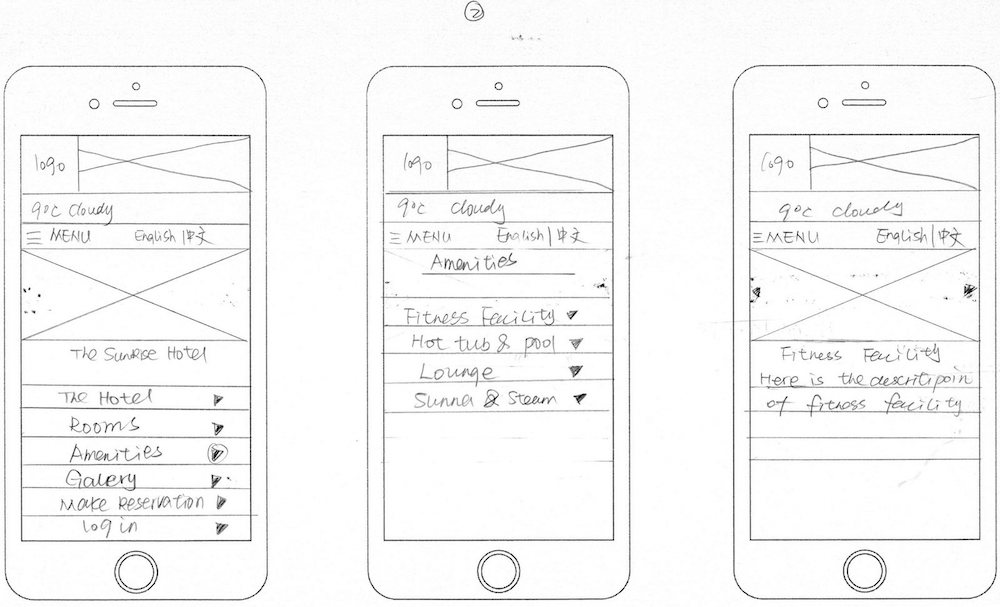 ②
logo
9°C Cloudy
MENU English|中文
The Sunrise Hotel
The Hotel
Rooms
Amenities
Galery
Make Reservation
log in
logo
9°C Cloudy
MENU English|中文
Amenities
Fitness Fecility
Hot tub & pool
Lounge
Sunna & Steam
logo
9°C cloudy
MENU English|中文
Fitness Fecility
Here is the descritipoin
of fitness fecility